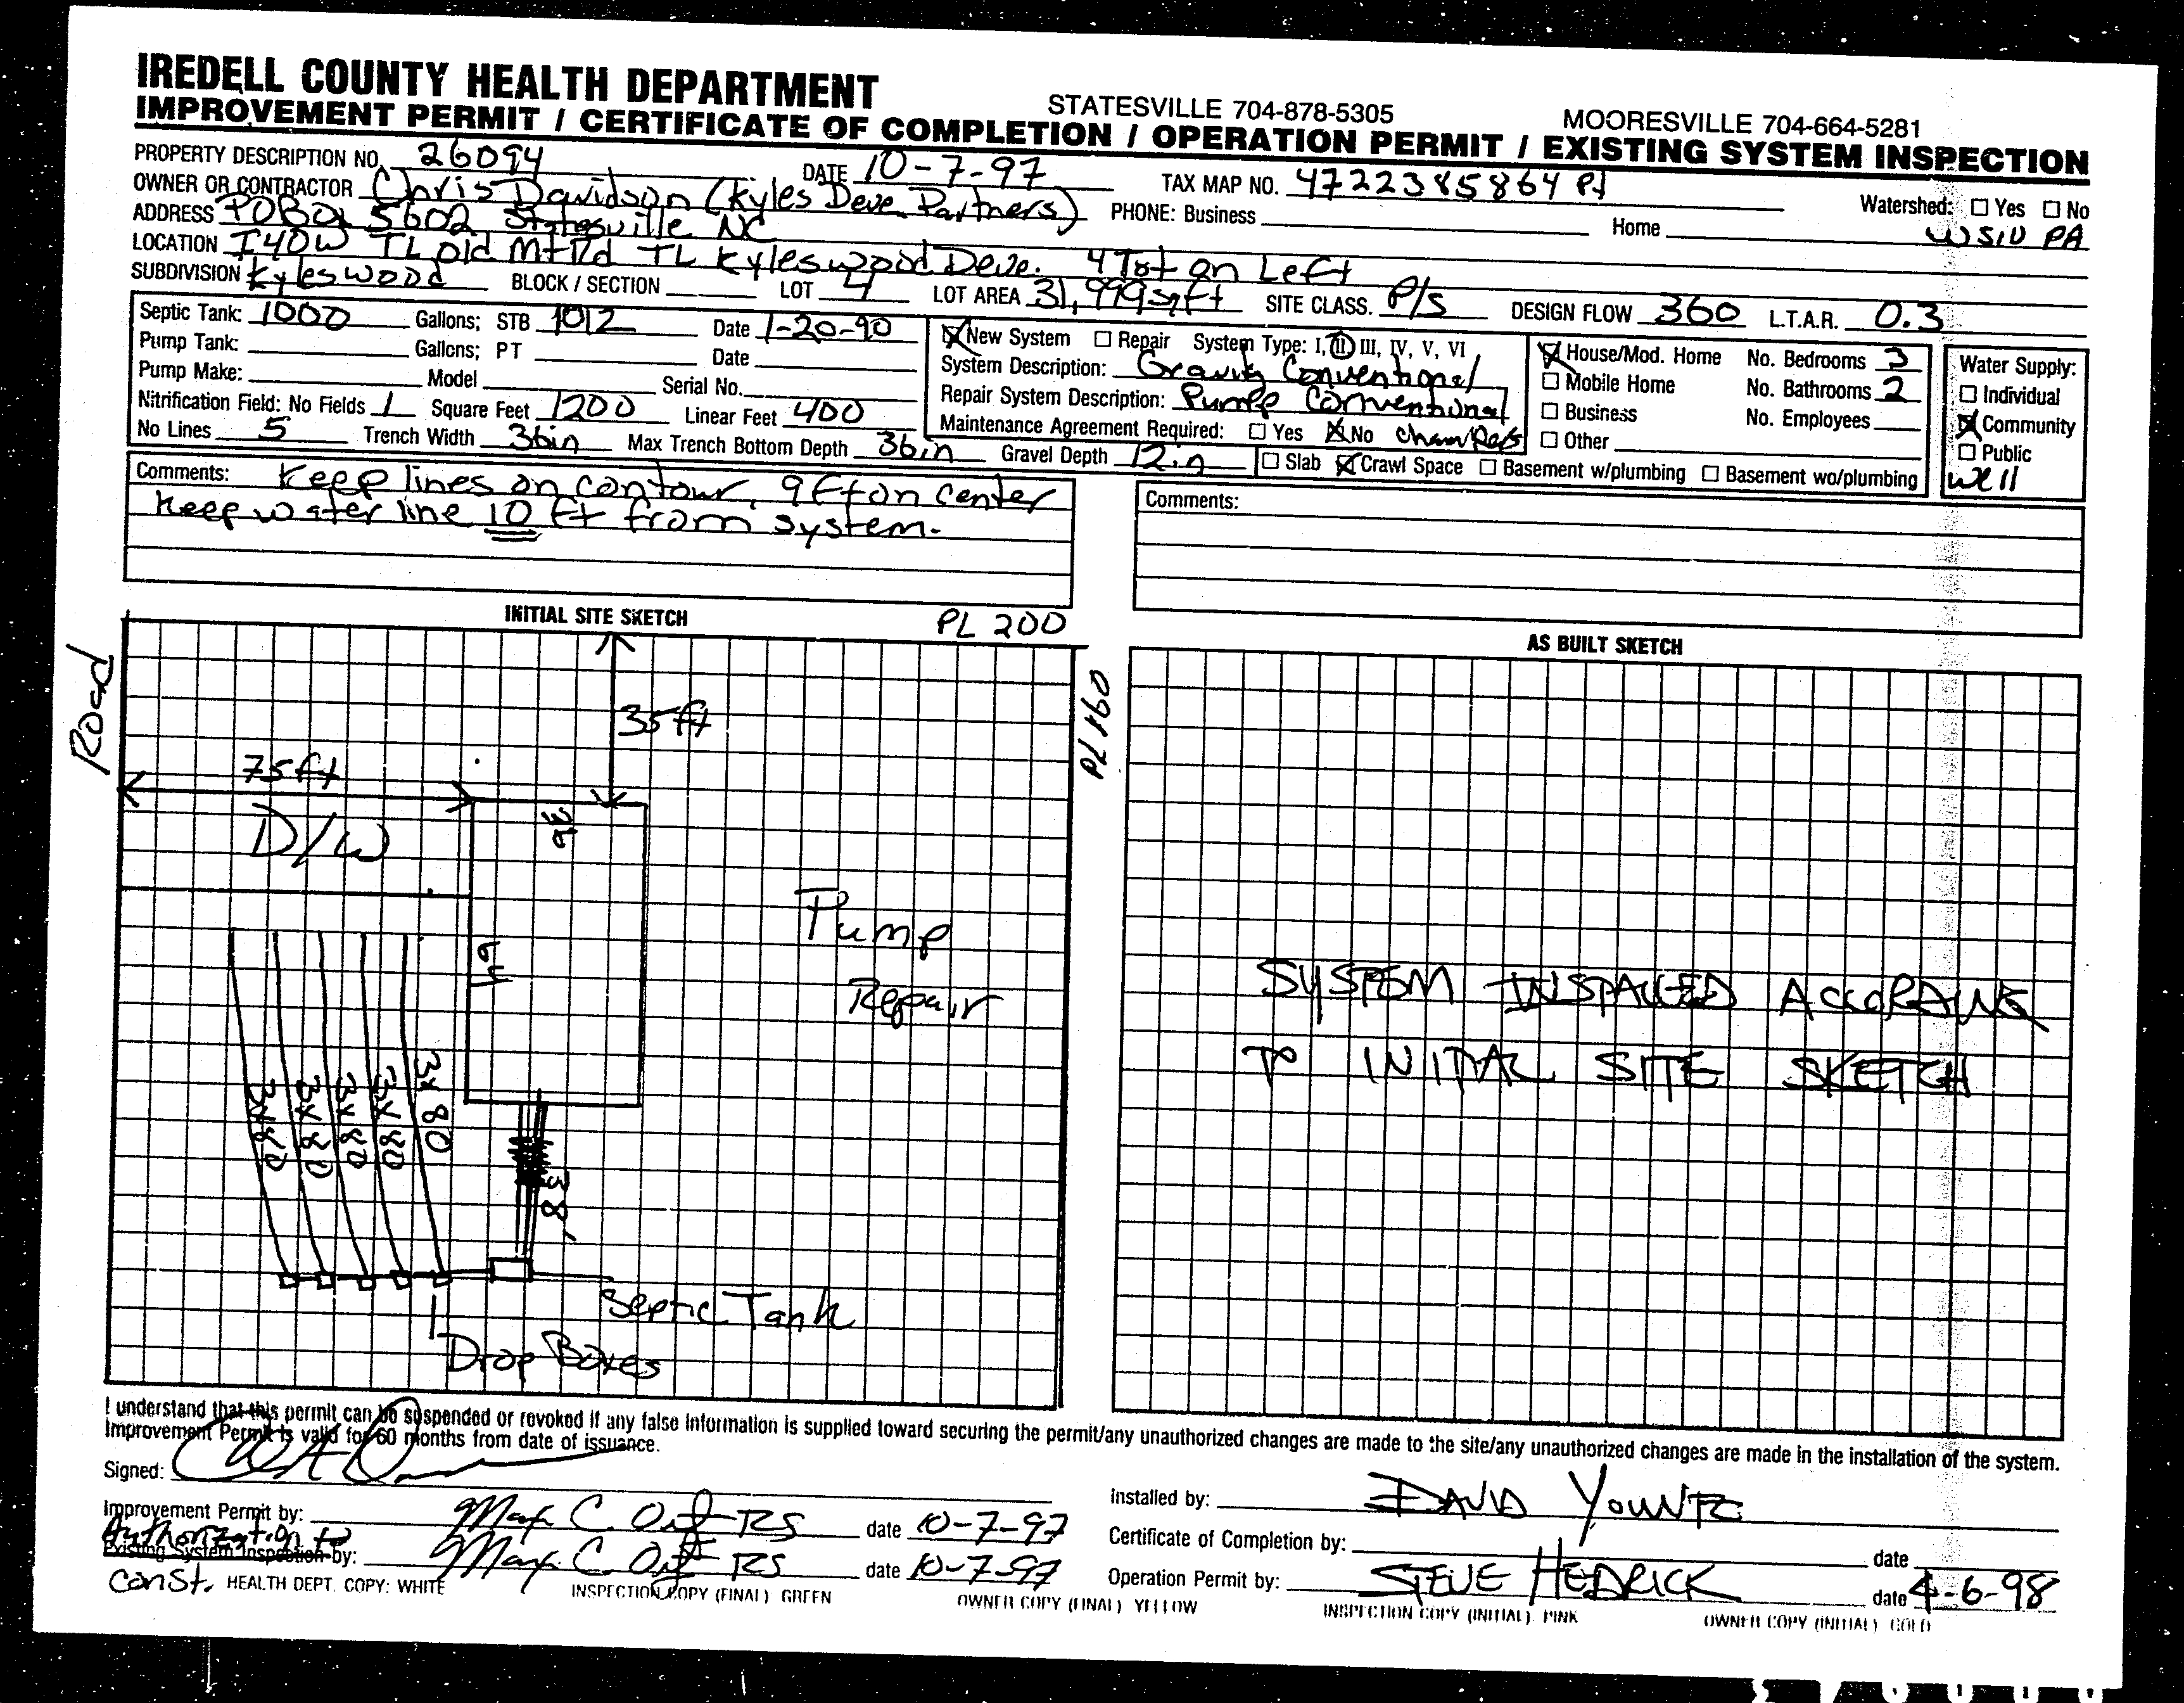 IREDELL COUNTY HEALTH DEPARTMENT
STATESVILLE 704-878-5305 MOORESVILLE 704-664-5281
IMPROVEMENT PERMIT / CERTIFICATE OF COMPLETION / OPERATION PERMIT / EXISTING SYSTEM INSPECTION
PROPERTY DESCRIPTION NO. 26094 DATE 10-7-97 TAX MAP NO. 4722385864 Pt
Watershed: ☐ Yes ☐ No
OWNER OR CONTRACTOR Chris Davidson (Kyles Deve. Partners) PHONE: Business Home
ADDRESS POBox 5602 Statesville NC WSIV PA
LOCATION I40W TL Old Mt Rd TL Kyleswood Deve. 4 on Left
SUBDIVISION Kyleswood BLOCK / SECTION LOT 4 LOT AREA 31,999 sq ft SITE CLASS. P/S DESIGN FLOW 360 L.T.A.R. 0.3
Septic Tank: 1000 Gallons; STB 1012 Date 1-20-90
Pump Tank: Gallons; PT Date
Pump Make: Model Serial No.
Nitrification Field: No Fields 1 Square Feet 1200 Linear Feet 400
No Lines 5 Trench Width 36in Max Trench Bottom Depth 36in Gravel Depth 12in
☒ New System ☐ Repair System Type: I, II, III, IV, V, VI
System Description: Gravity Conventional
Repair System Description: Pump Conventional
Maintenance Agreement Required: ☐ Yes ☒ No chambers
☒ House/Mod. Home No. Bedrooms 3
☐ Mobile Home No. Bathrooms 2
☐ Business No. Employees
☐ Other
☐ Slab ☒ Crawl Space ☐ Basement w/plumbing ☐ Basement wo/plumbing
Water Supply:
☐ Individual
☒ Community
☐ Public
well
Comments: Keep lines on contour, 9 ft on center
Keep water line 10 ft from system.
Comments:
INITIAL SITE SKETCH
PL 200
Road
35ft
PL 160
75ft
D/W
Pump
Repair
3x80
3x80
3x80
3x80
3x80
38
Septic Tank
Drop Boxes
AS BUILT SKETCH
SYSTEM INSTALLED ACCORDING
TO INITIAL SITE SKETCH
I understand that this permit can be suspended or revoked if any false information is supplied toward securing the permit/any unauthorized changes are made to the site/any unauthorized changes are made in the installation of the system.
Improvement Permit is valid for 60 months from date of issuance.
Signed:
Improvement Permit by: C. RS date 10-7-97
Authorization to
Existing System Inspection by: C. RS date 10-7-97
Const.
Installed by: DAVID
Certificate of Completion by: date
Operation Permit by: STEVE HEDRICK date 4-6-98
HEALTH DEPT. COPY: WHITE INSPECTION COPY (FINAL) GREEN OWNER COPY (FINAL) YELLOW INSPECTION COPY (INITIAL) PINK OWNER COPY (INITIAL) GOLD